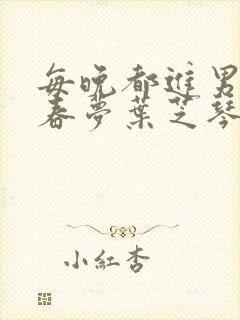 每晚都進男
春夢葉芝琴
小紅杏